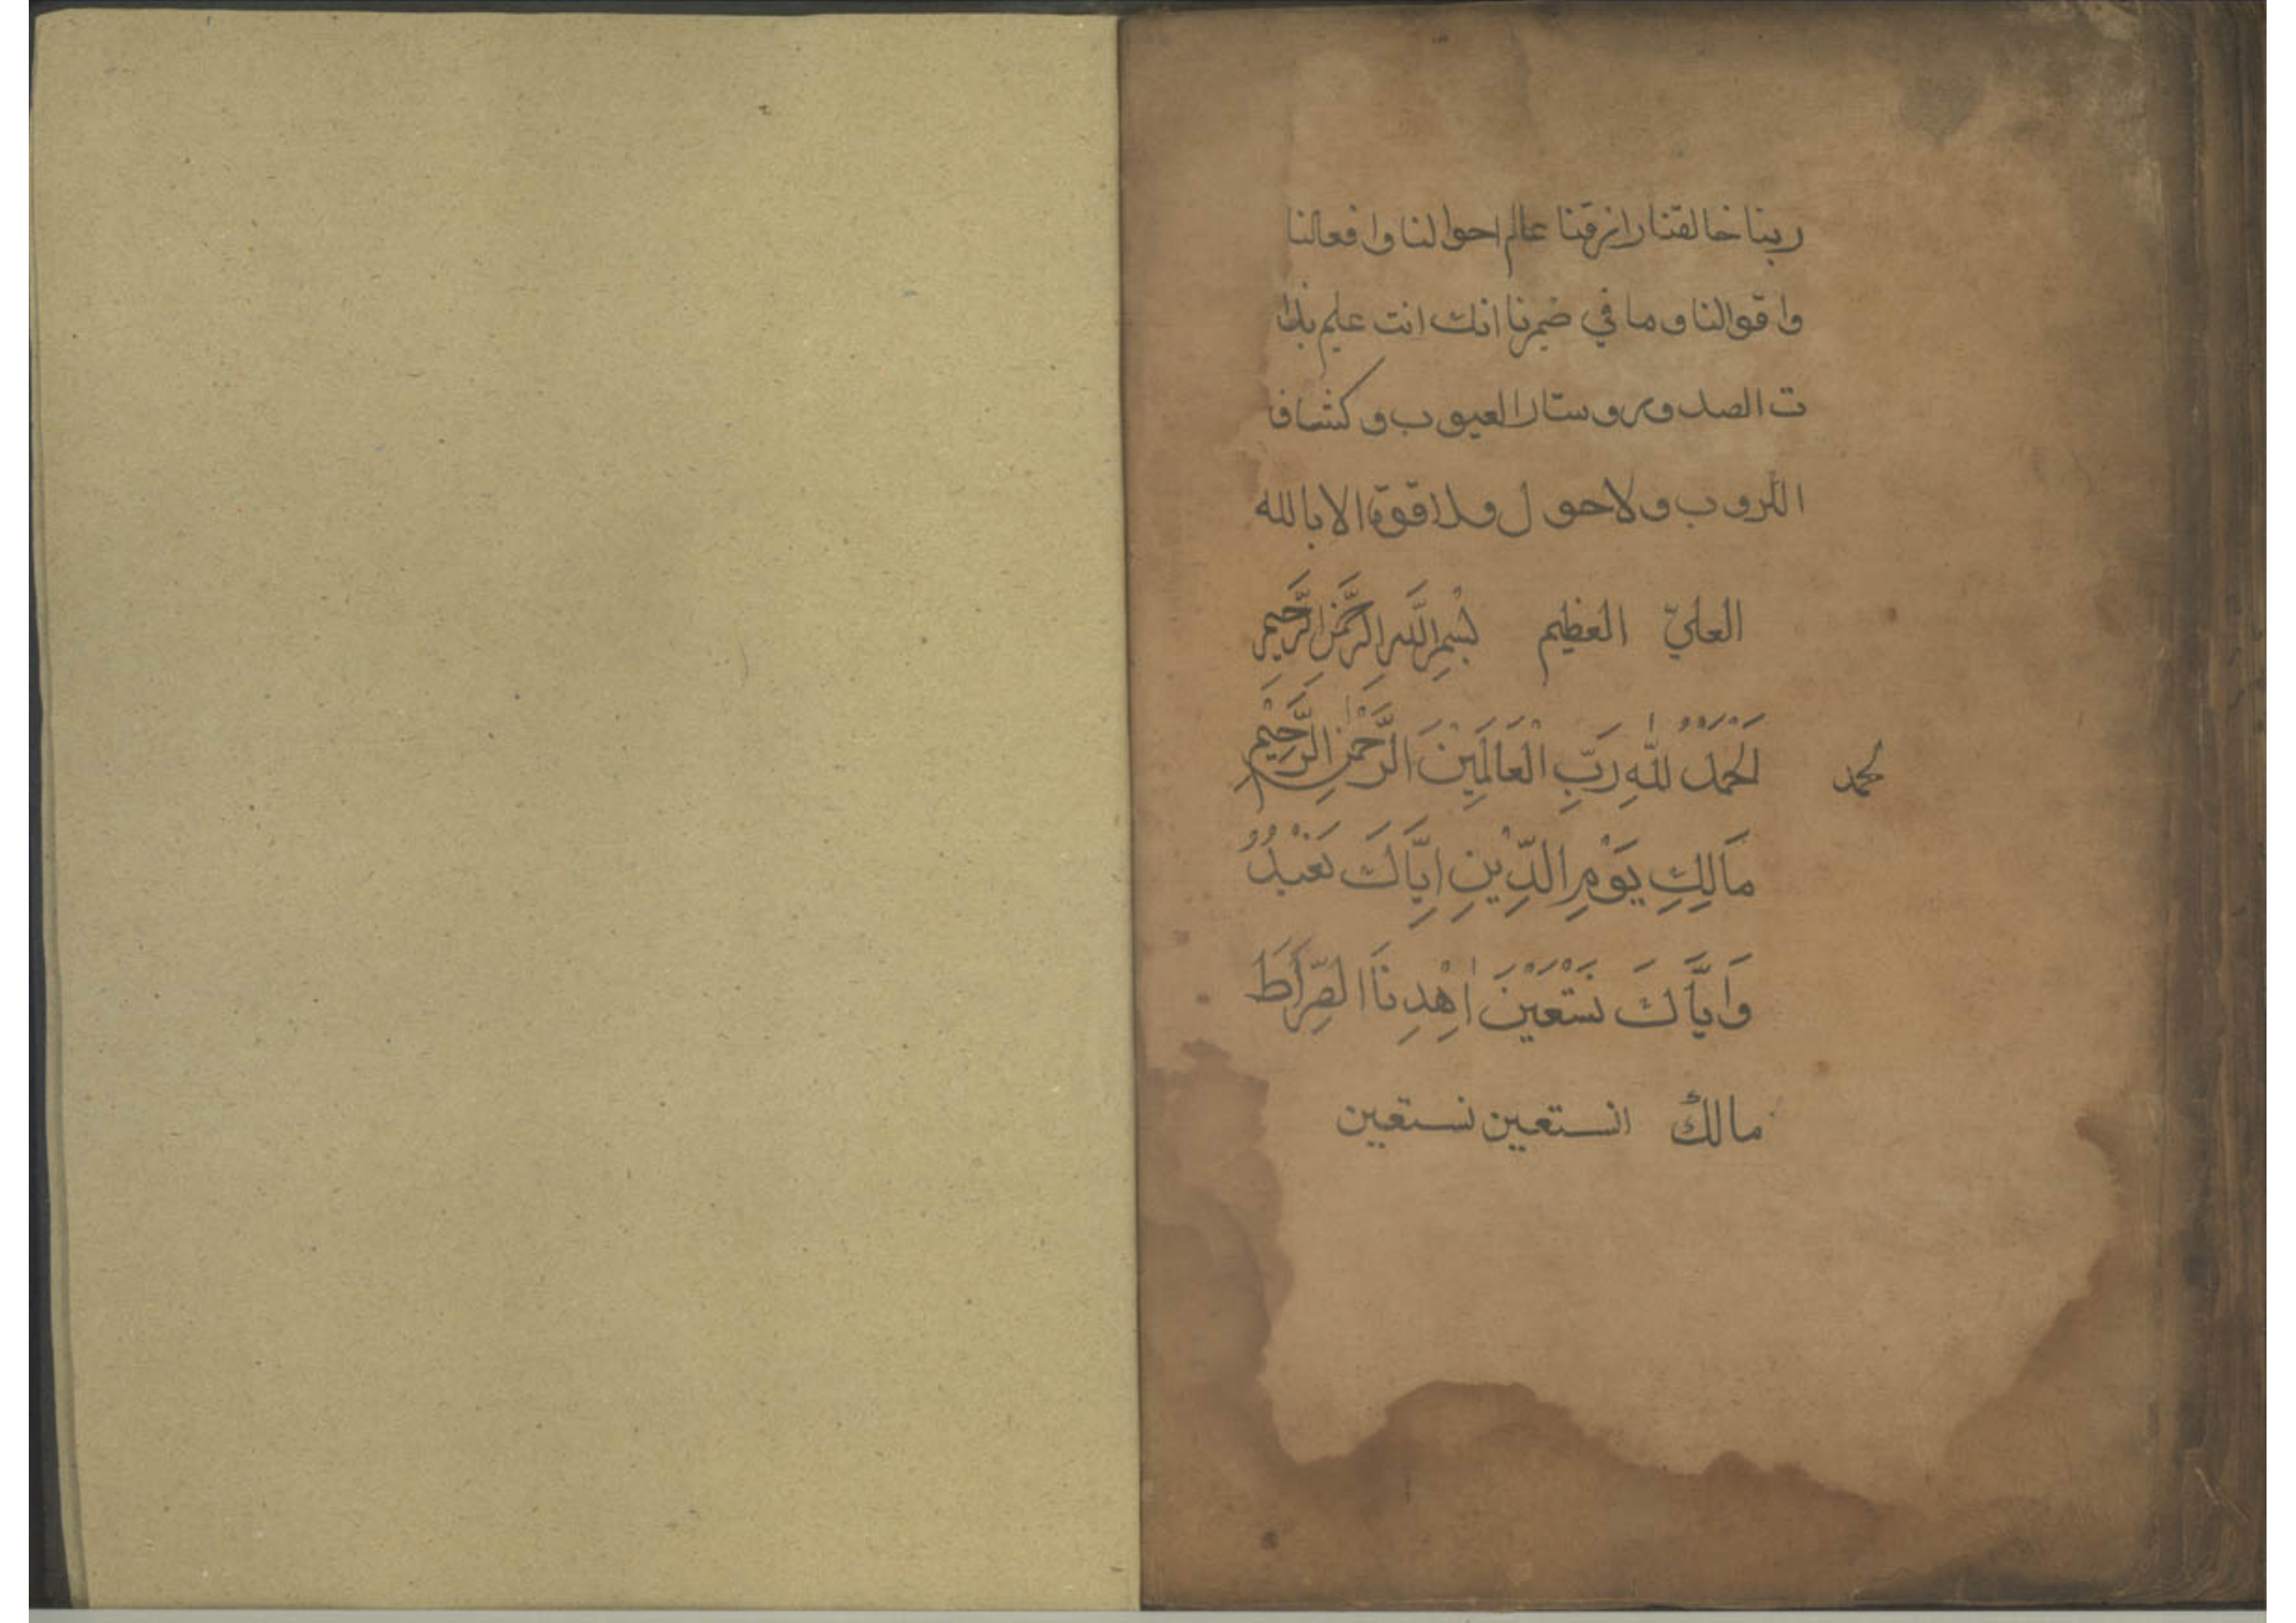 ربنا خالقنا رازقنا عالم احوالنا وافعالنا
واقوالنا وما في ضميرنا انك انت عليم بذا
ت الصدور وستار العيوب وكشاف
الكروب ولاحول ولاقوة الا بالله
العليّ العظيم بِسْمِ اللَّهِ الرَّحْمَنِ الرَّحِيمِ
اَلْحَمْدُ لِلّٰهِ رَبِّ الْعَالَمِيْنَ الرَّحْمٰنِ الرَّحِيْمِ
لحمد
مَالِكِ يَوْمِ الدِّيْنِ اِيَّاكَ نَعْبُدُ
وَاِيَّاكَ نَسْتَعِيْنَ اِهْدِنَا الصِّرَاطَ
مالك انستعين نستعين